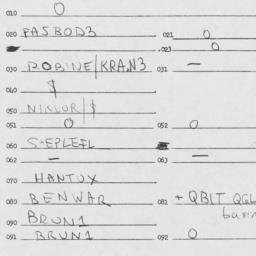 010 O
020 PASBOD3 021 O
.023 O
030 ROBINE/KRAN3 031 —
040 $
050 NIKLOR/$
051 O 052 O
060 S-EPLEFL
062 — 063 —
070 HANTUX
080 BENWAR 081 + QBIT QGL
090 BRUN1
091 BRUN1 092 O